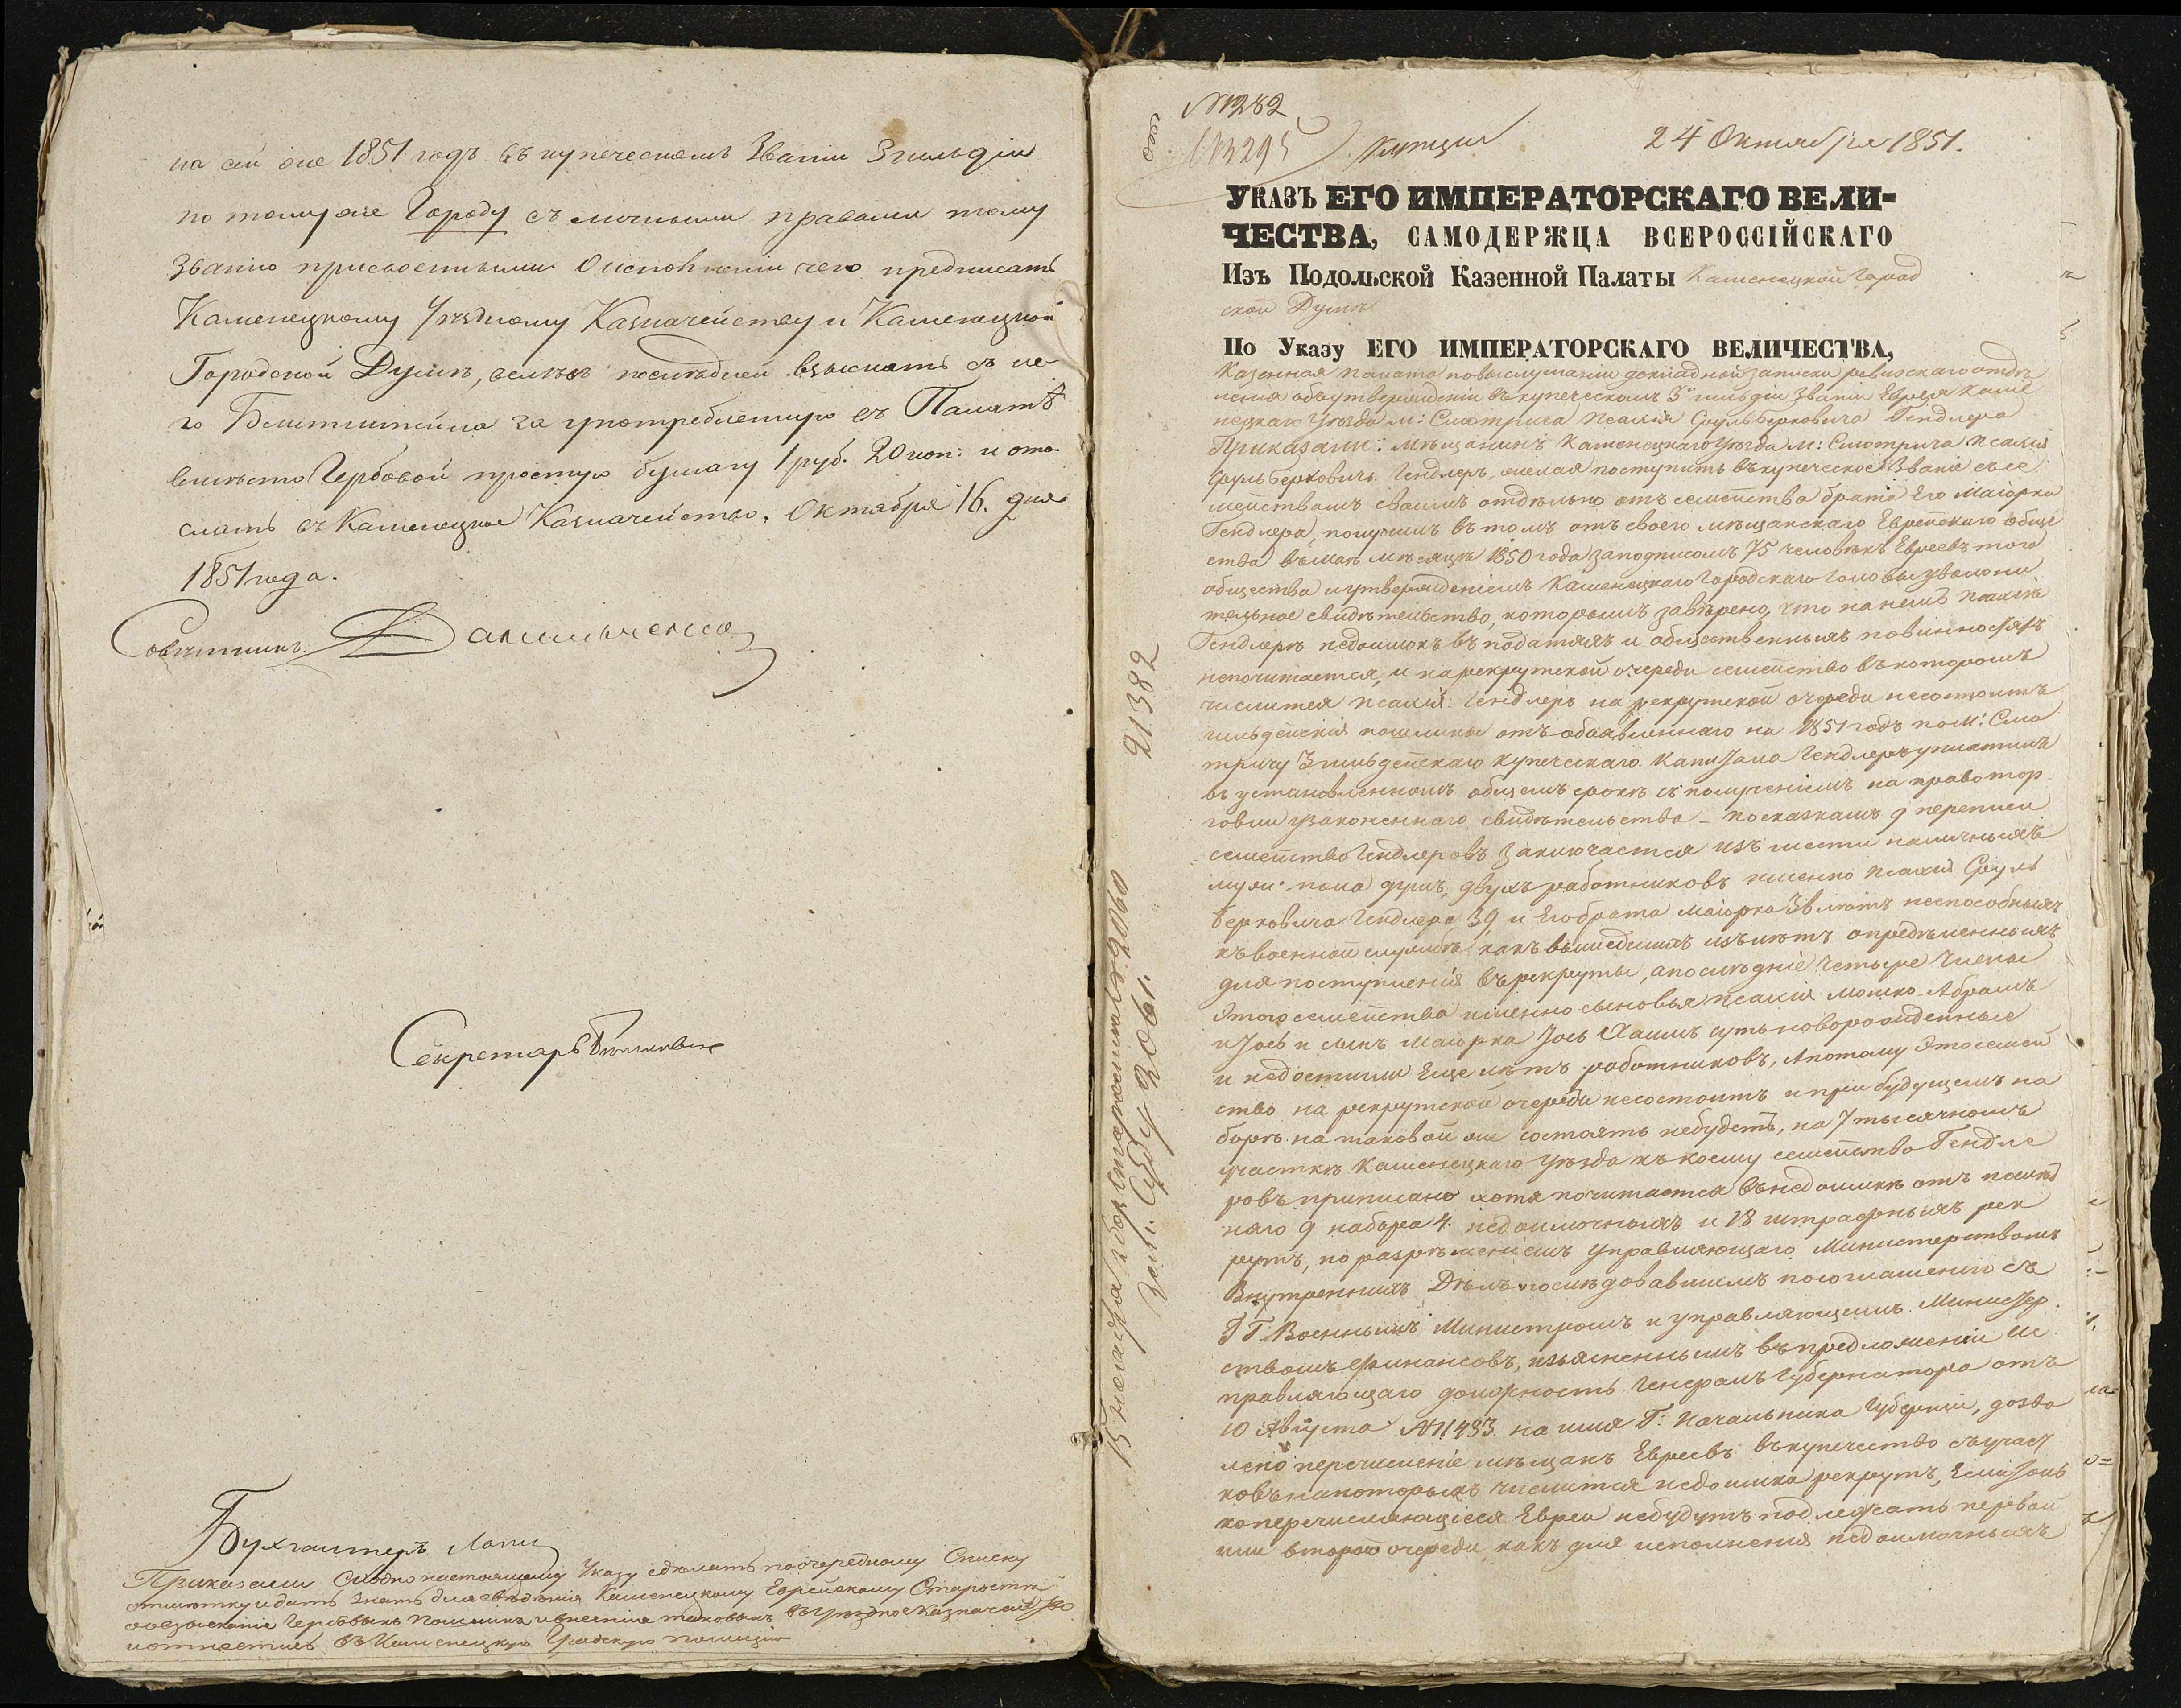 на сей же 1851 годъ въ купеческомъ Званіи 3 гильдіи
по тому же Городу съ личными правами тому
Званію присвоенными О исполненіи чего предписать
Каменецкому Уѣздному Казначейству и Каменецкой
Городской Думѣ, велѣвъ послѣдней взыскать съ не-
го за употребленную въ Палатѣ
вмѣсто Гербовой простую бумагу 1 руб. 20 коп: и ото-
слать въ Каменецкое Казначейство. Октября 16. дня
1851 года.
Совѣтникъ Данильченко
Секретарь
Бухгалтеръ
Приказали Сходно настоящему Указу сдѣлать по очередному Списку
отмѣтку и дать знать для свѣдѣнія Каменецкому Еврейскому Старостѣ
о взысканіе Гербовыхъ Пошлинъ и внесенія таковыхъ въ Уѣздное Казначейство
въ Каменецкую Градскую полицію
№ 282
№ 3295
Купцы
24 Октября 1851.
УКАЗЪ ЕГО ИМПЕРАТОРСКАГО ВЕЛИ-
ЧЕСТВА, САМОДЕРЖЦА ВСЕРОССІЙСКАГО
Изъ Подольской Казенной Палаты Каменецкой Город
ской Думѣ
По Указу ЕГО ИМПЕРАТОРСКАГО ВЕЛИЧЕСТВА,
Казенная Палата по выслушаніи докладной записки ревизскаго отдѣ
ленія объ утвержденіи въ купеческомъ 3й гильдіи Званіи Еврея Каме
нецкаго Уѣзда м: Смотрича Псахія Сруль Берковича Гендлера
Приказали: мѣщанинъ Каменецкаго Уѣзда м: Смотрича Псахія
Сруль Берковичъ Гендлеръ, желая поступить въ купеческое Званіе съ се
мействомъ своимъ отдѣльно отъ семейства брата Его Маіорка
Гендлера, получилъ въ томъ отъ своего мѣщанскаго Еврейскаго обще
ства въ маѣ мѣсяцѣ 1850 года за подписомъ 75 человѣкъ Евреевъ того
общества и утвержденіемъ Каменецкаго Городскаго Головы уволни
тельное свидѣтельство, которымъ завѣрено, что на немъ Псахіѣ
Гендлерѣ недоимокъ въ податяхъ и общественныхъ повинностяхъ
непочитается, и на рекрутской очереди семейство въ которомъ
числится Псахія Гендлеръ на рекрутской очереди несостоитъ
гильдейскія пошлины отъ объявленнаго на 1851 годъ по м: Смо
тричу 3 гильдейскаго купеческаго капитала Гендлеръ уплатилъ
въ установленномъ общемъ срокѣ съ полученіемъ на право тор
говли узаконеннаго свидѣтельства – по сказкамъ 9 переписи
семейство Гендлеровъ заключается изъ шести наличныхъ
муж: пола душъ, двухъ работниковъ именно Псахія Сруль
Берковича Гендлера 39, и Его брата Маіорка 38 лѣтъ неспособныхъ
къ военной службѣ какъ вышедшихъ изъ лѣтъ опредѣленныхъ
для поступленія въ рекруты, а послѣдніе четыре члены
этого семейства именно сыновья Псахія Мошко-Абрамъ
и Іось и сынъ Маіорка Іось Хаимъ суть новорожденные
и недостигли Еще лѣтъ работниковъ, А потому это семей
ство на рекрутской очереди несостоитъ и при будущемъ на
борѣ на таковой же состоять небудетъ, на 7 тысячномъ
участкѣ Каменецкаго Уѣзда къ коему семейство Гендле
ровъ приписано хотя почитается въ недоимкѣ отъ послѣд
няго 9 набора 4. недоимочныхъ и 18 штрафныхъ рек
рутъ, но разрѣшеніемъ Управляющаго Министерствомъ
Внутреннихъ Дѣлъ послѣдовавшемъ по соглашенію съ
ГГ. Военнымъ Министромъ и управляющимъ Министер.
ствомъ Финансовъ, изъясненнымъ въ предложеніи Ис
правляющаго должность Генералъ Губернатора отъ
10 Августа № 11483 на имя Г: Начальника Губерніи, дозво
лено перечисленіе мѣщанъ Евреевъ въ купечество съ участ
ковъ на которыхъ числится недоимка рекрутъ, Если толь
ко перечисляющіеся Евреи небудутъ подлежать первой
или второй очереди какъ для исполненія недоимочныхъ
21382
15 Ноября
20060
20061.